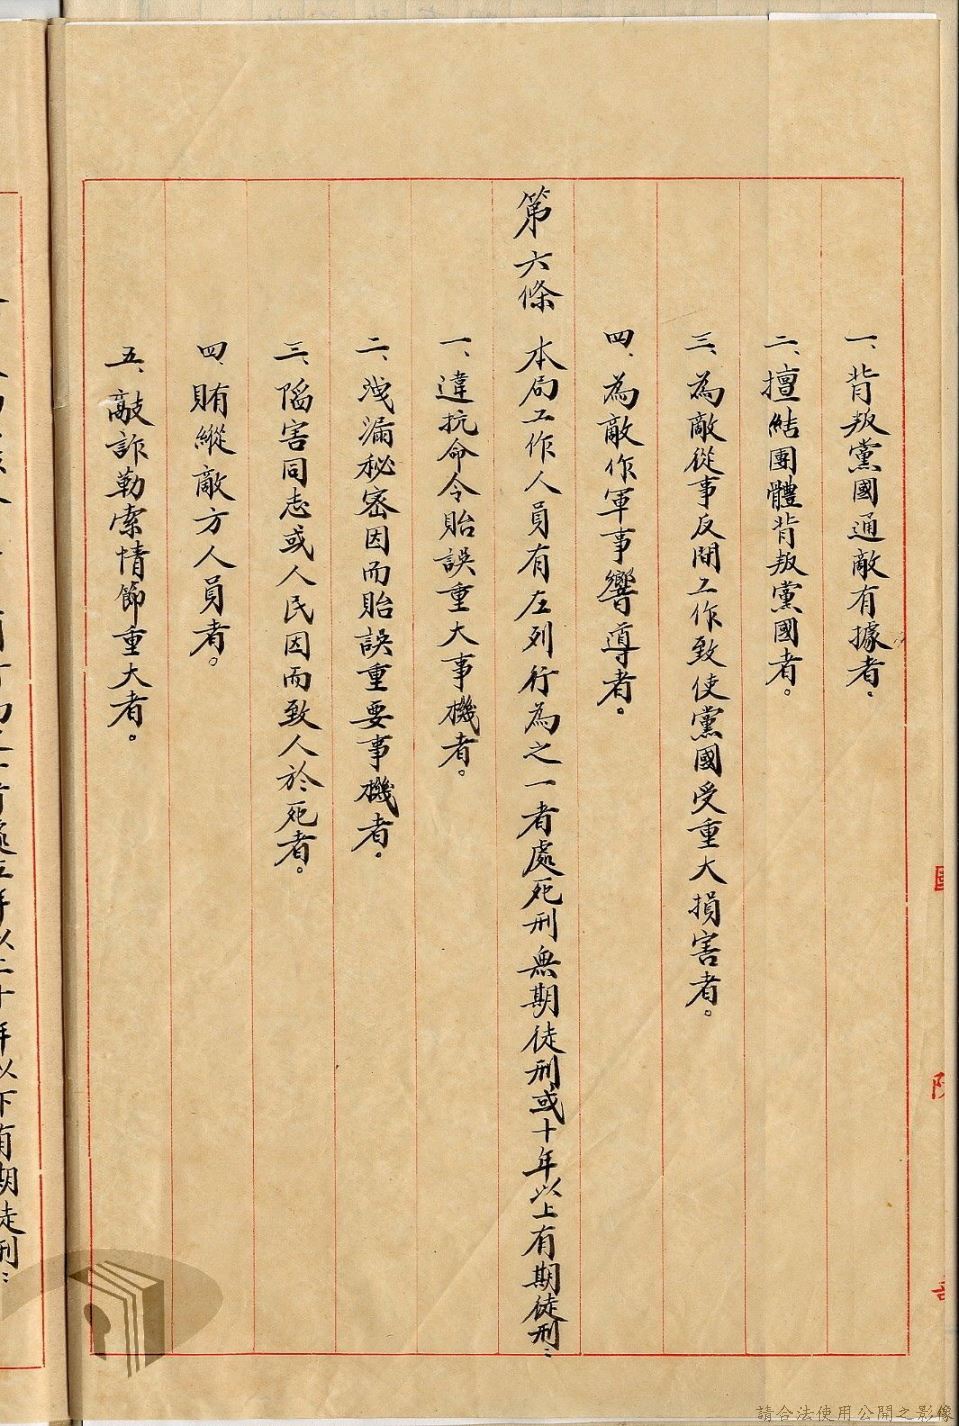 一、背叛黨國通敵有據者。
二、擅結團體背叛黨國者。
三、為敵從事反間工作致使黨國受重大損害者。
四、為敵作軍事響導者。
第六條 本局工作人員有左列行為之一者處死刑無期徒刑或十年以上有期徒刑：
一、違抗命令貽誤重大事機者。
二、洩漏秘密因而貽誤重要事機者。
三、陷害同志或人民因而致人於死者。
四、賄縱敵方人員者。
五、敲詐勒索情節重大者。
年以下有期徒刑：
請合法使用公開之影像